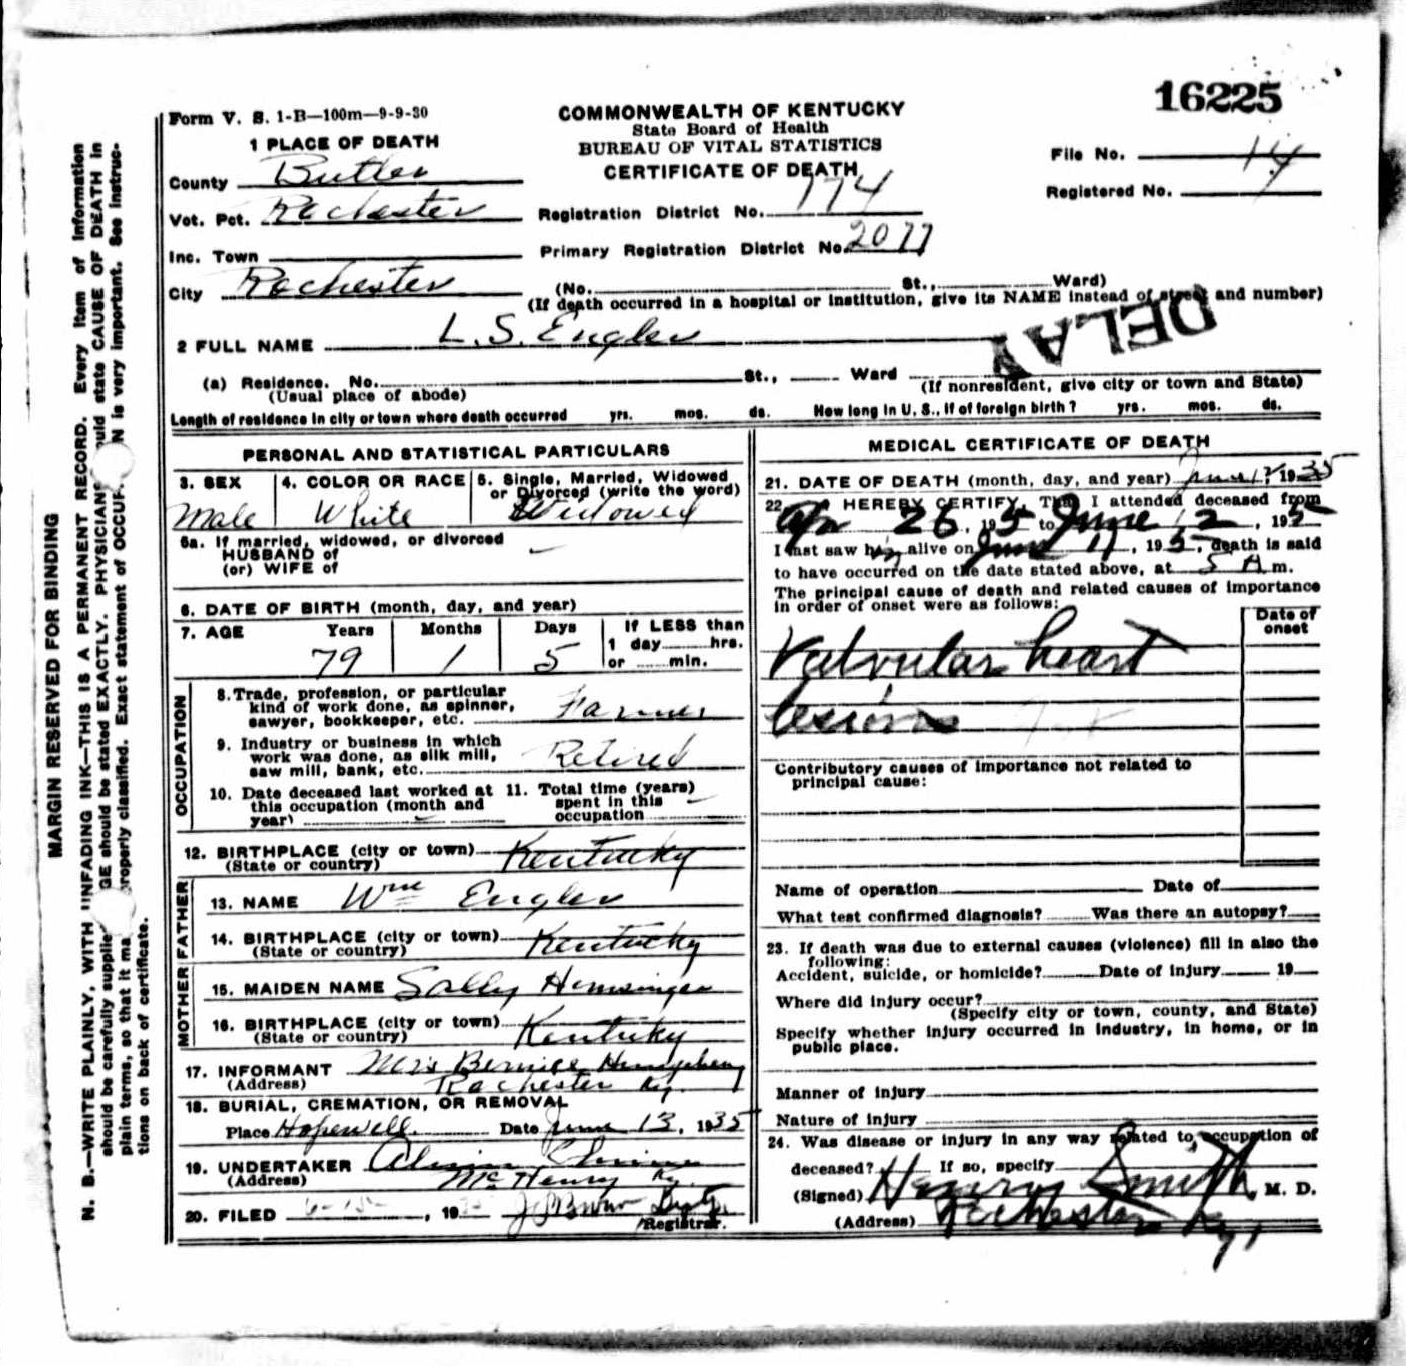 16225
Form V. S. 1-B—100m—9-9-30
COMMONWEALTH OF KENTUCKY
State Board of Health
BUREAU OF VITAL STATISTICS
CERTIFICATE OF DEATH
File No. 14
Registered No.
1 PLACE OF DEATH
County Butler
Vot. Pct. Rochester
Registration District No. 174
Inc. Town
Primary Registration District No. 2077
City Rochester
(No. St., Ward)
(If death occurred in a hospital or institution, give its NAME instead of street and number)
DELAY
2 FULL NAME L. S. Engler
(a) Residence. No. St., Ward
(Usual place of abode)
(If nonresident, give city or town and State)
Length of residence in city or town where death occurred yrs. mos. ds. How long in U. S., if of foreign birth? yrs. mos. ds.
PERSONAL AND STATISTICAL PARTICULARS
3. SEX
Male
4. COLOR OR RACE
White
5. Single, Married, Widowed
or Divorced (write the word)
Widowed
5a. If married, widowed, or divorced
HUSBAND of
(or) WIFE of
6. DATE OF BIRTH (month, day, and year)
7. AGE Years Months Days If LESS than
1 day hrs.
or min.
79 1 5
OCCUPATION
8. Trade, profession, or particular
kind of work done, as spinner,
sawyer, bookkeeper, etc. Farmer
9. Industry or business in which
work was done, as silk mill,
saw mill, bank, etc. Retired
10. Date deceased last worked at
this occupation (month and
year)
11. Total time (years)
spent in this
occupation
12. BIRTHPLACE (city or town) Kentucky
(State or country)
FATHER
13. NAME Wm Engler
14. BIRTHPLACE (city or town) Kentucky
(State or country)
MOTHER
15. MAIDEN NAME Sally
16. BIRTHPLACE (city or town) Kentucky
(State or country)
17. INFORMANT Mrs Bernice
(Address) Rochester Ky.
18. BURIAL, CREMATION, OR REMOVAL
Place Hopewell Date June 13, 1935
19. UNDERTAKER
(Address) McHenry Ky.
20. FILED , 19
Registrar.
MEDICAL CERTIFICATE OF DEATH
21. DATE OF DEATH (month, day, and year) June 12, 1935
22. I HEREBY CERTIFY, That I attended deceased from
Apr 26, 1935 to June 12, 1935
I last saw him alive on June 11, 1935, death is said
to have occurred on the date stated above, at 5 A m.
The principal cause of death and related causes of importance
in order of onset were as follows:
Date of
onset
Valvular heart
lesions
Contributory causes of importance not related to
principal cause:
Name of operation Date of
What test confirmed diagnosis? Was there an autopsy?
23. If death was due to external causes (violence) fill in also the
following:
Accident, suicide, or homicide? Date of injury 19
Where did injury occur?
(Specify city or town, county, and State)
Specify whether injury occurred in industry, in home, or in
public place.
Manner of injury
Nature of injury
24. Was disease or injury in any way related to occupation of
deceased? If so, specify
(Signed) Henry Smith M. D.
(Address) Rochester Ky.
MARGIN RESERVED FOR BINDING
N. B.—WRITE PLAINLY, WITH UNFADING INK—THIS IS A PERMANENT RECORD. Every item of information
should be carefully supplied. AGE should be stated EXACTLY. PHYSICIANS should state CAUSE OF DEATH in
plain terms, so that it may be properly classified. Exact statement of OCCUPATION is very important. See instruc-
tions on back of certificate.